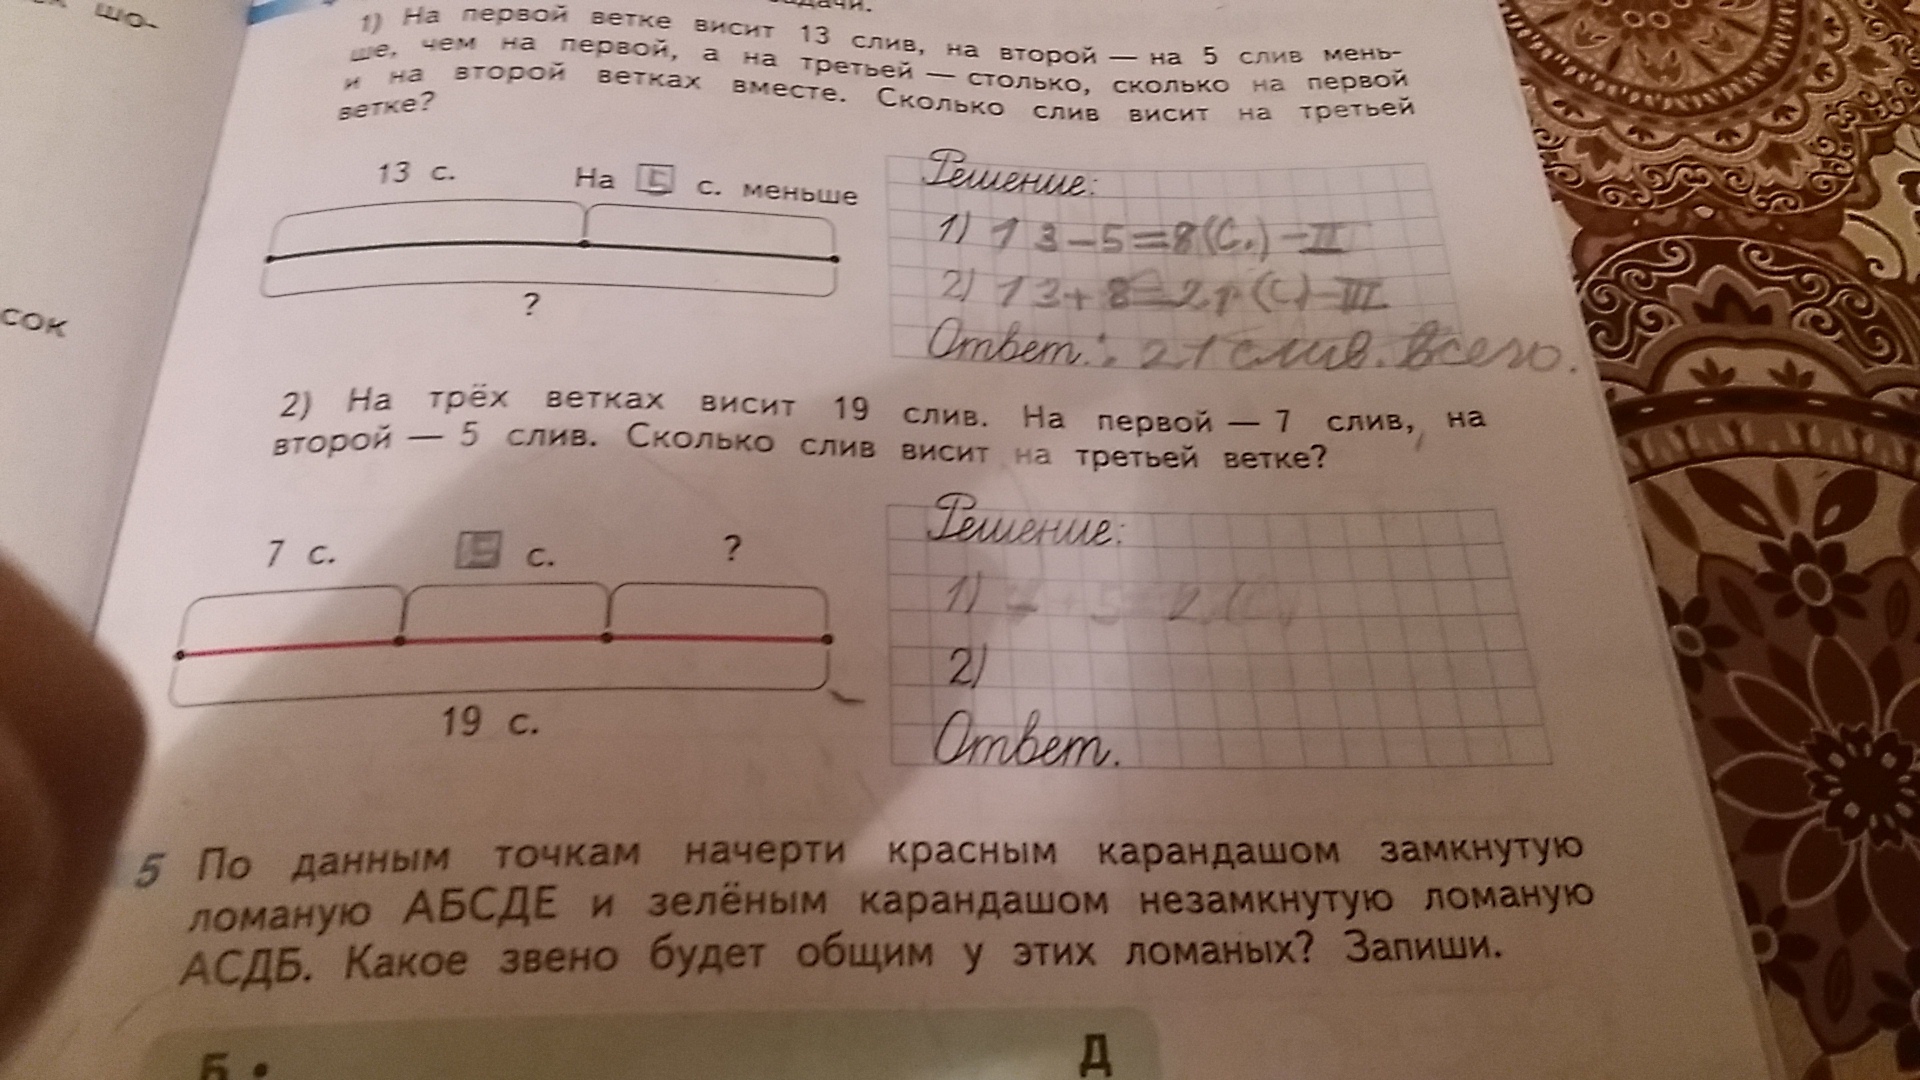 шо-
сок
задачи.
1) На первой ветке висит 13 слив, на второй — на 5 слив мень-
ше, чем на первой, а на третьей — столько, сколько на первой
и на второй ветках вместе. Сколько слив висит на третьей
ветке?
13 с. На 5 с. меньше
?
Решение:
1) 13-5=8(с.)-II
2) 13+8=21(с)-III
Ответ.: 21 слив. всего.
2) На трёх ветках висит 19 слив. На первой — 7 слив, на
второй — 5 слив. Сколько слив висит на третьей ветке?
7 с. 5 с. ?
19 с.
Решение:
1)
2)
Ответ.
5 По данным точкам начерти красным карандашом замкнутую
ломаную АБСДЕ и зелёным карандашом незамкнутую ломаную
АСДБ. Какое звено будет общим у этих ломаных? Запиши.
Б • Д